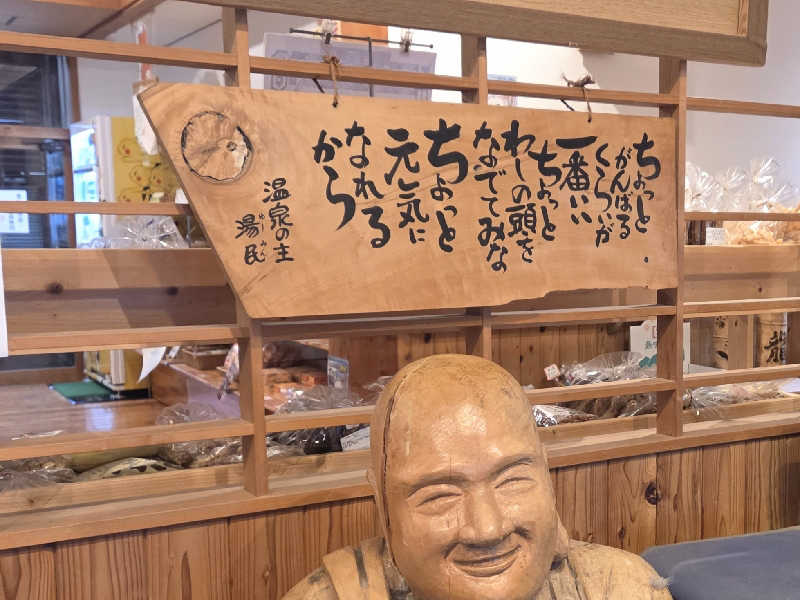 ちょっと
がんばる
くらいが
一番いい
ちょっと
わしの頭を
なでてみな
ちょっと
元気に
なれる
から
温泉の主
湯民
ゆみん
龍